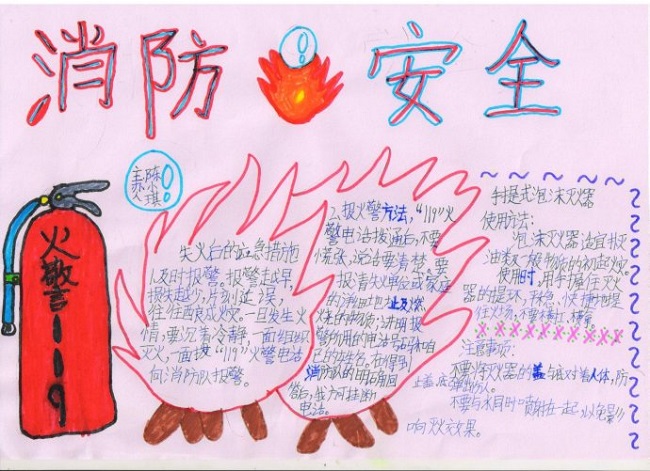 消防安全
陈小琪
火警119
失火后的应急措施
1及时报警。报警越早,
损失越少,片刻延误,
往往酿成火灾。一旦发生火
情,要沉着冷静,一面组织
灭火,一面拨"119"火警电话
向消防队报警。
2、报火警方法,"119"火
警电话拨通后,不要
慌张,说话要清楚,要
报清失火单位或家庭
的详细地址及燃
烧的物质;讲明报
警所用的电话号码和自
己的姓名。在得到
消防队的明确回
答后,我方可挂断
电话。
手提式泡沫灭火器
使用方法:
泡沫灭火器适宜扑灭
油类及一般物质的初起火。
使用时,用手握住灭火
器的提环,
往火场,不要横扛、横拿。
注意事项:
不要将灭火器的盖与底对着人体,防
止盖底弹出伤人。
不要与水同时喷射在一起,以免影
响灭火效果。